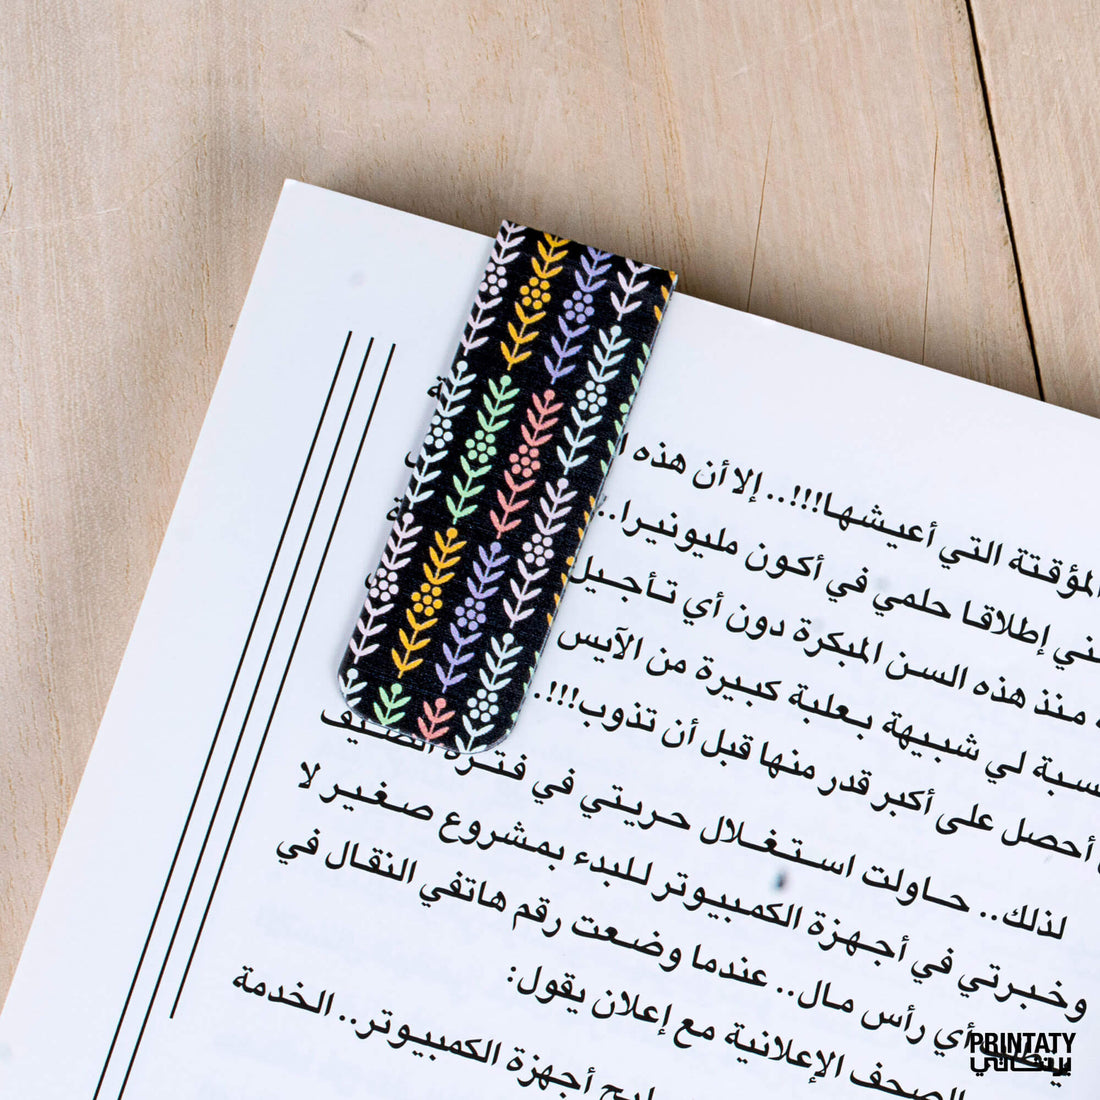 المؤقتة التي أعيشها!!!.. إلا أن هذه
إطلاقا حلمي في أكون مليونيرا..
منذ هذه السن المبكرة دون أي تأجيل
لي شبيهة بعلبة كبيرة من الآيس
أحصل على أكبر قدر منها قبل أن تذوب!!!.
لذلك.. حاولت استغلال حريتي في فترة الصيف
وخبرتي في أجهزة الكمبيوتر للبدء بمشروع صغير لا
أي رأس مال.. عندما وضعت رقم هاتفي النقال في
الصحف الإعلانية مع إعلان يقول:
أجهزة الكمبيوتر.. الخدمة
PRINTATY
برينتاتي